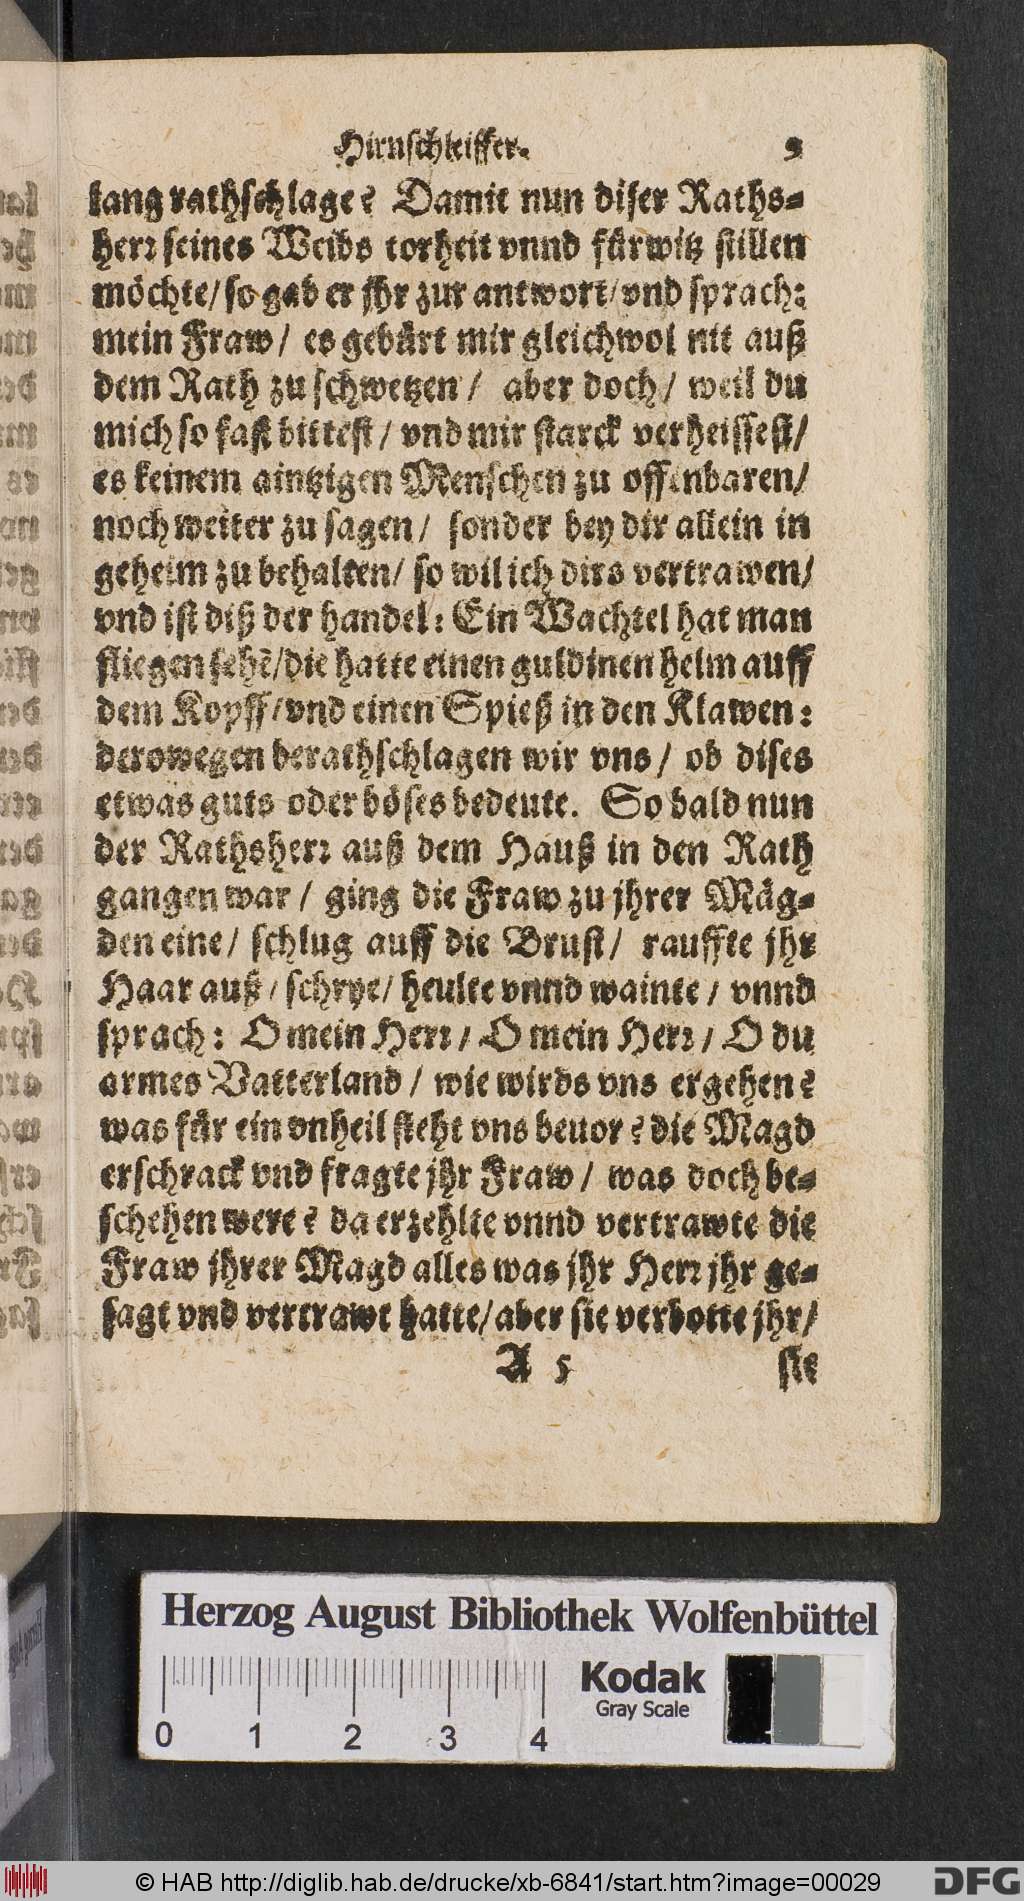 Hirnschleiffer. 9
lang rathschlage? Damit nun diser Raths-
herr seines Weibs torheit vnnd fürwitz stillen
möchte/ so gab er jhr zur antwort/ vnd sprach:
mein Fraw/ es gebürt mir gleichwol nit auß
dem Rath zu schwetzen/ aber doch/ weil du
mich so fast bittest/ vnd mir starck verheissest/
es keinem aintzigen Menschen zu offenbaren/
noch weiter zu sagen/ sonder bey dir allein in
geheim zu behalten/ so wil ich dirs vertrawen/
vnd ist diß der handel: Ein Wachtel hat man
fliegen sehē/ die hatte einen guldinen helm auff
dem Kopff/ vnd einen Spieß in den Klawen:
derowegen berathschlagen wir vns/ ob dises
etwas guts oder böses bedeute. So bald nun
der Rathsherr auß dem Hauß in den Rath
gangen war/ ging die Fraw zu jhrer Mäg-
den eine/ schlug auff die Brust/ rauffte jhr
Haar auß/ schrye/ heulte vnnd wainte/ vnnd
sprach: O mein Herr/ O mein Herr/ O du
armes Vatterland/ wie wirds vns ergehen?
was für ein vnheil steht vns beuor? die Magd
erschrack vnd fragte jhr Fraw/ was doch be-
schehen were? da erzehlte vnnd vertrawte die
Fraw jhrer Magd alles was jhr Herr jhr ge-
sagt vnd vertrawt hatte/ aber sie verbotte jhr/
A 5 sie
Herzog August Bibliothek Wolfenbüttel
Kodak
Gray Scale
0 1 2 3 4
© HAB http://diglib.hab.de/drucke/xb-6841/start.htm?image=00029
DFG